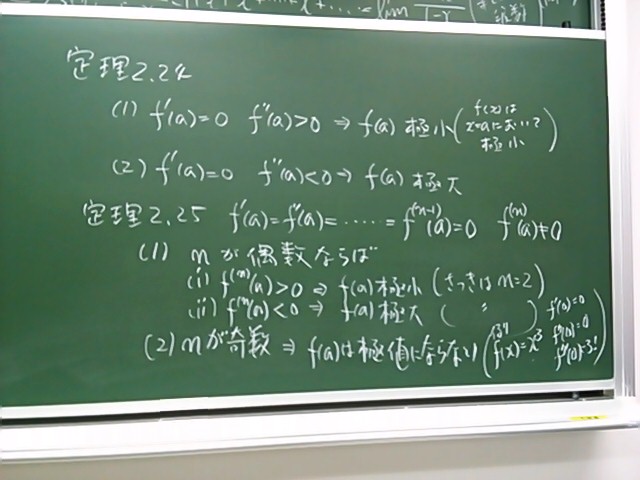 = lim
定理2.24
(1) f'(a)=0 f''(a)>0 ⇒ f(a) 極小 (f(x)は x=aにおいて 極小)
(2) f'(a)=0 f''(a)<0 ⇒ f(a) 極大
定理2.25 f'(a)=f''(a)=‥‥‥=f^(n-1)(a)=0 f^(n)(a)≠0
(1) nが偶数ならば
(i) f^(n)(a)>0 ⇒ f(a)極小 (さっきはn=2)
(ii) f^(n)(a)<0 ⇒ f(a)極大 ( 〃 )
(2) nが奇数 ⇒ f(a)は極値にならない (例 f(x)=x^3 f'(0)=0 f''(0)=0 f'''(0)=3!)